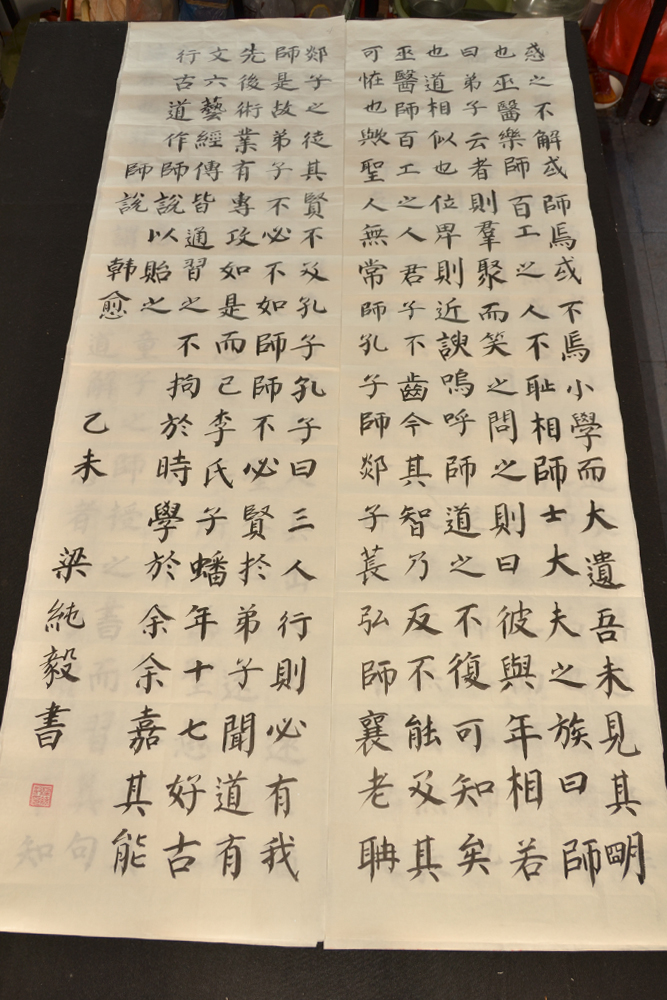 惑之不解或師焉或不焉小學而大遺吾未見其明
也巫醫樂師百工之人不耻相師士大夫之族曰師
曰弟子云者則羣聚而笑之問之則曰彼與年相若
也道相似也位卑則近諛嗚呼師道之不復可知矣
巫醫師百工之人君子不齒今其智乃反不能及其
可恠也歟聖人無常師孔子師郯子萇弘師襄老聃
郯子之徒其賢不及孔子孔子曰三人行則必有我
師是故弟子不必不如師師不必賢於弟子聞道有
先後術業有專攻如是而已李氏子蟠年十七好古
文六藝經傳皆通習之不拘於時學於余余嘉其能
行古道作師說以貽之
師說 韓愈 乙未 梁純毅書